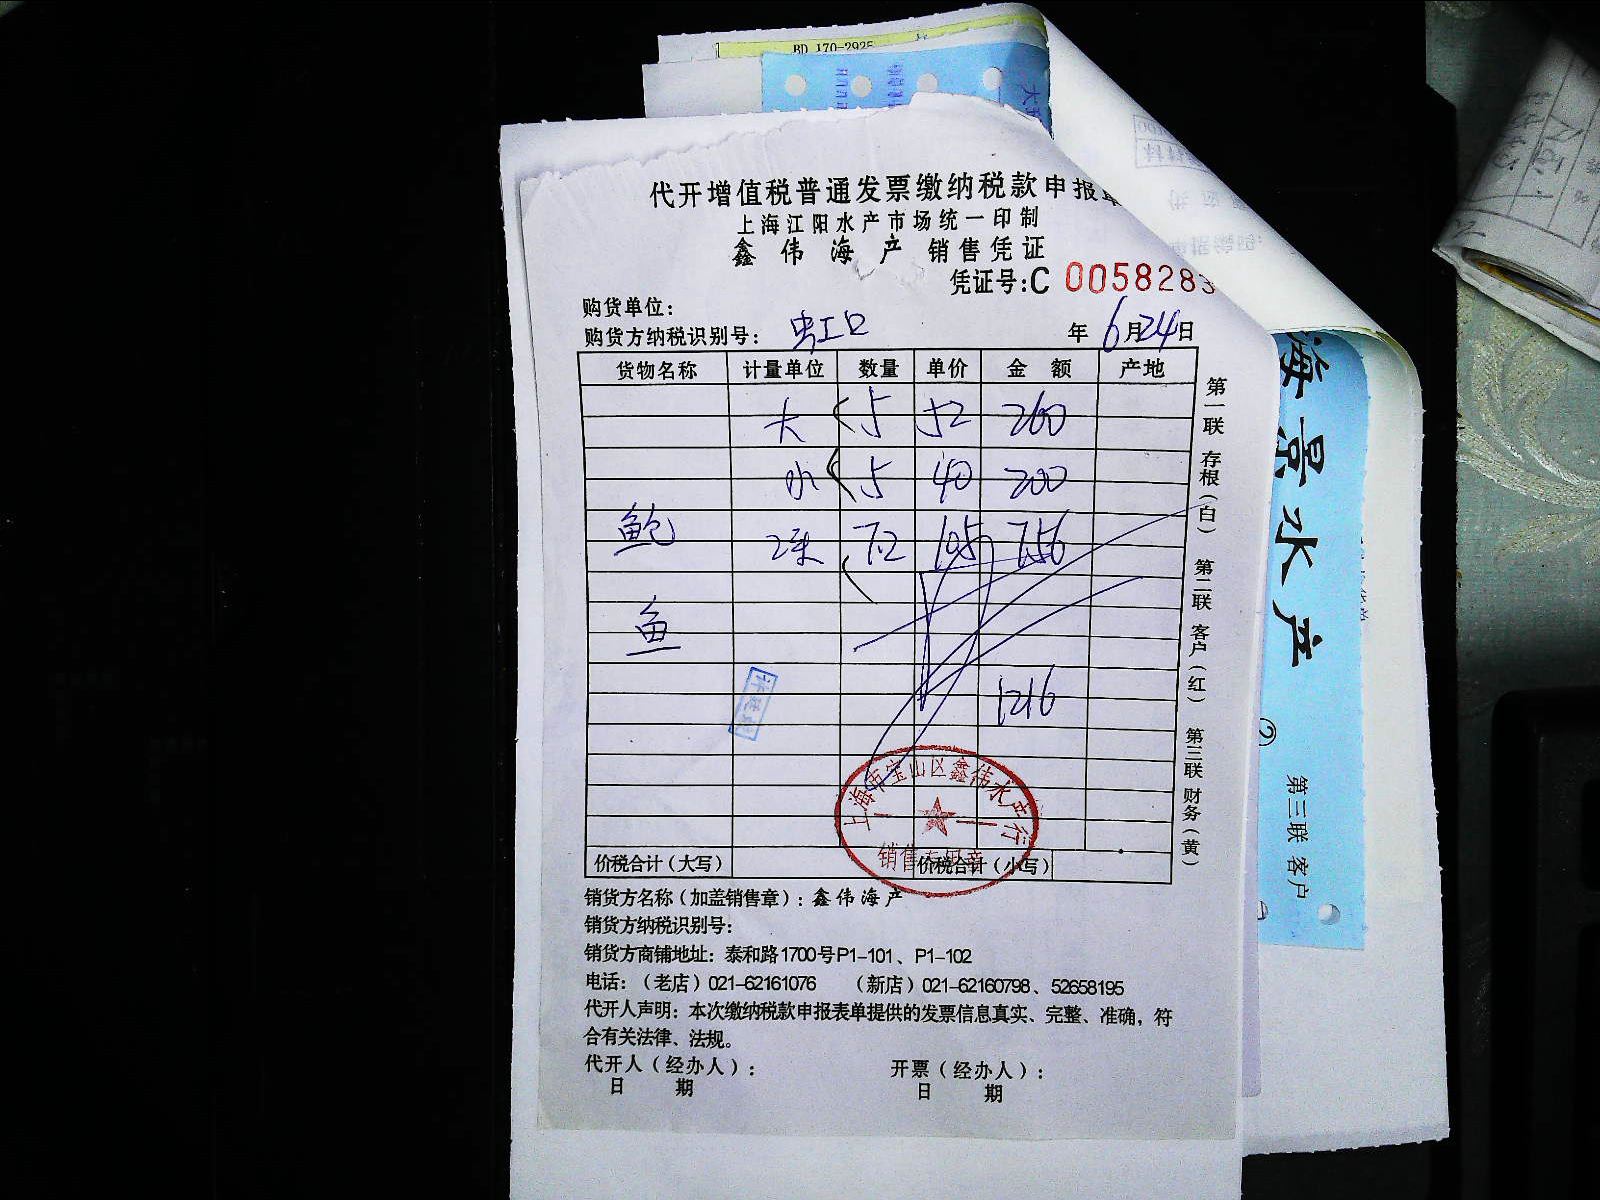 BD 170-2925
代开增值税普通发票缴纳税款申报单
上海江阳水产市场统一印制
鑫伟海产 销售凭证
凭证号:C 0058283
购货单位:
购货方纳税识别号: 虹口 年 6月24日
货物名称 计量单位 数量 单价 金额 产地
大 5 52 260
小 5 40 200
鲍 7.2 105 756
鱼
1216
上海市宝山区鑫伟水产行
销售专用章
价税合计(大写) 价税合计(小写)
第一联 存根(白) 第二联 客户(红) 第三联 财务(黄)
销货方名称(加盖销售章):鑫伟海产
销货方纳税识别号:
销货方商铺地址:泰和路1700号P1-101、P1-102
电话:(老店)021-62161076 (新店)021-62160798、52658195
代开人声明:本次缴纳税款申报表单提供的发票信息真实、完整、准确,符
合有关法律、法规。
代开人(经办人): 开票(经办人):
日 期 日 期
海景水产
第三联 客户